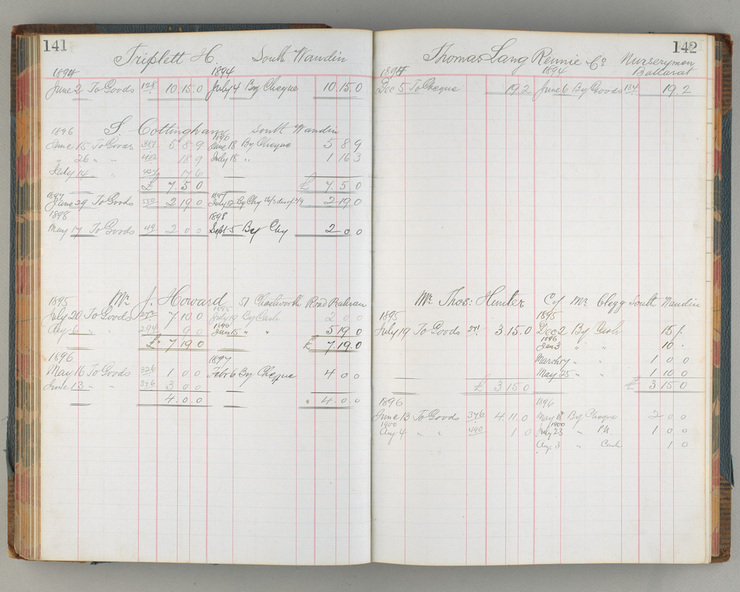 141
Triplett H. South Wandin
1894 1894
June 2 To Goods 10 15 0 July 4 By Cheque 10 15 0
1896 S. Cottingham South Wandin
1896
June 15 To Goods 5 8 9 June 18 By Cheque 5 8 9
" 26 " " 18 9 July 18 " 1 16 3
July 14 " 17 6
£ 7 5 0 £ 7 5 0
1897 1897
June 29 To Goods 2 19 0 2 19 0
1898 1898
May 17 To Goods 2 0 0 Sept 5 By Chq 2 0 0
1895 Mr J. Howard 51 Chatsworth Road Prahran
July 20 To Goods 7 10 0 By Cash 2 0 0
Aug 6 " 9 0 5 19 0
£ 7 19 0 £ 7 19 0
1896 1897
May 16 To Goods 326 1 0 0 Feb 6 By Cheque 4 0 0
June 13 " " 376 3 0 0
4 0 0 4 0 0
142
Thomas Lang Rennie & Co Nurserymen
Ballarat
1894 1894
Dec 5 To Cheque 19 2 June 6 By Goods 134 19 2
Mr Thos: Hunter C/o Mr Clegg South Wandin
1895 1895
July 19 To Goods 3 15 0 Dec 2 By Cash 15/-
1896
Jan 3 " " 10 -
March " " 1 0 0
May 25 " " 1 10 0
£ 3 15 0 £ 3 15 0
1896 1896
June 13 To Goods 376 4 11 0 May By Cheque 2 0 0
1900 1900
Aug 4 " " 440 1 0 July 23 " 1 0 0
Aug 3 " Cash 1 0